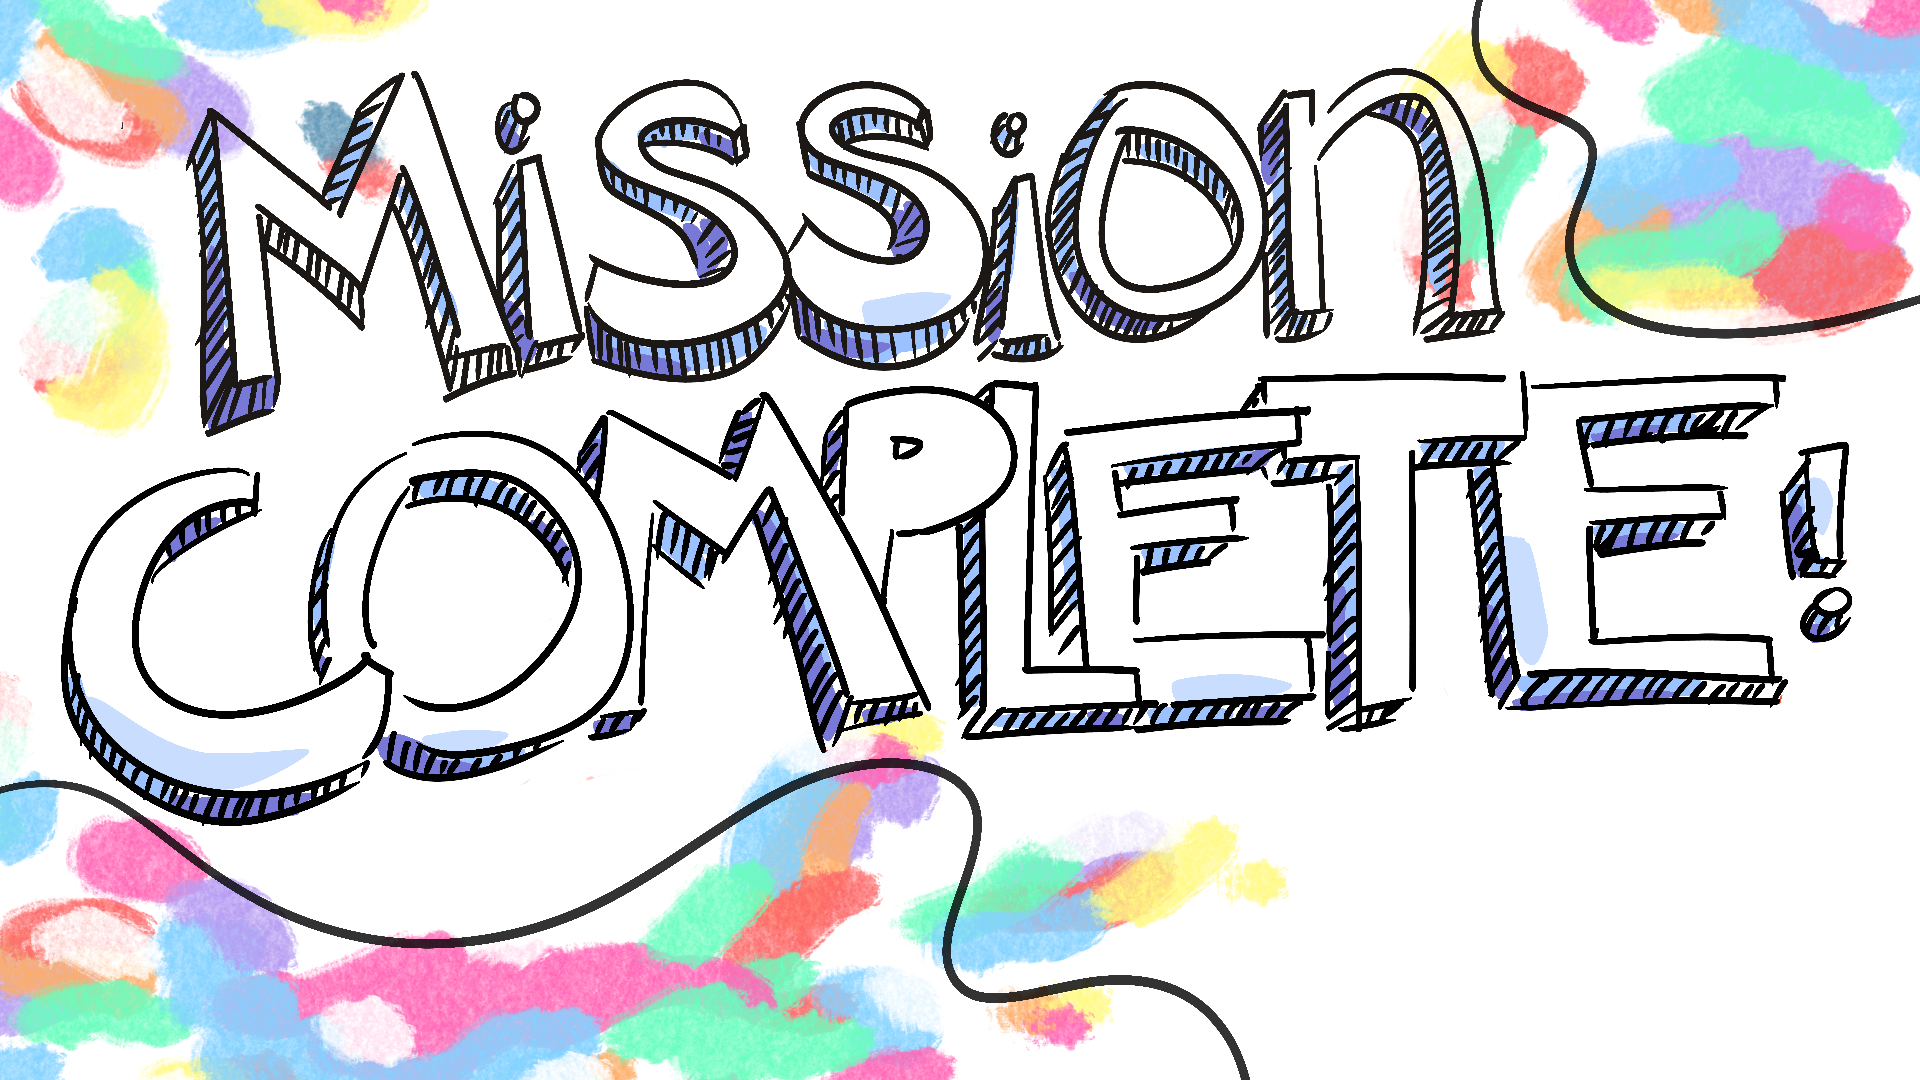 Mission
COMPLETE!